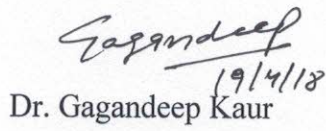 Gagandeep
19/4/18
Dr. Gagandeep Kaur